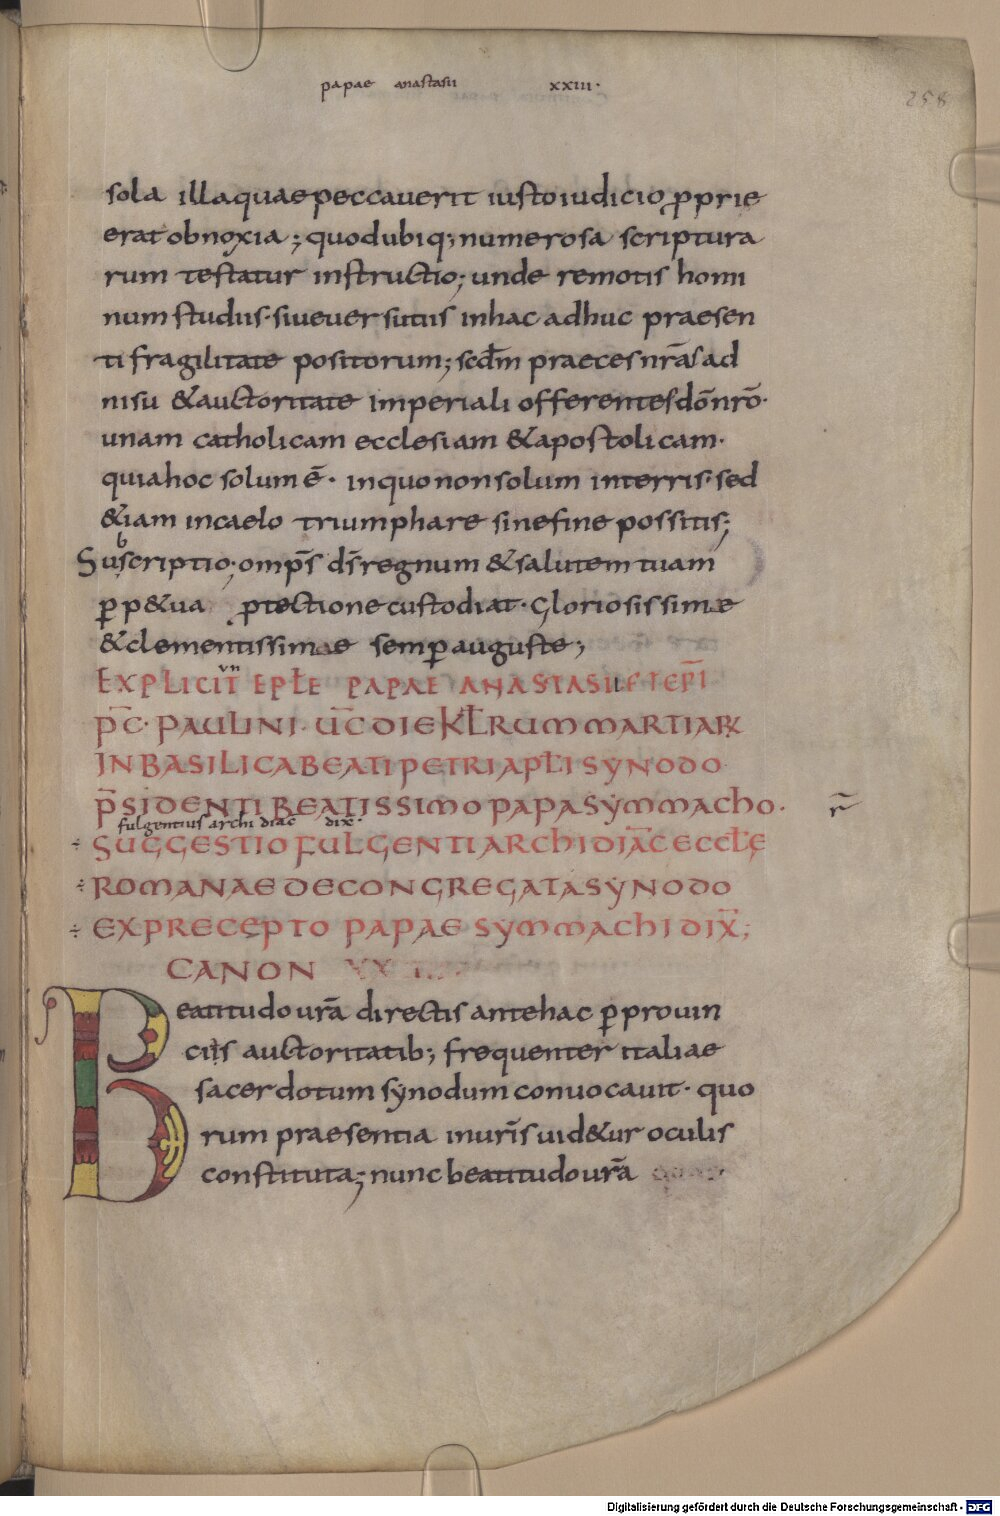 papae anastasii xxiii·
258
sola illa quae peccauerit iusto iudicio ꝓprie
erat obnoxia; quod ubiq; numerosa scriptura
rum testatur instructio; unde remotis homi
num studiis· siue uersutiis in hac adhuc praesen
ti fragilitate positorum; sed̄m praeces nr̄as ad
nisu &auctoritate imperiali offerentes dō nrō·
unam catholicam ecclesiam &apostolicam·
quia hoc solum ē· in quo non solum in terris· sed
&iam in caelo triumphare sine fine possitis;
Subscriptio; omps̄ ds̄ regnum &salutem tuam
ꝑp&ua ꝓtectione custodiat· Gloriosissime
&clementissimae semꝑ auguste;
EXPLICIT EPLE PAPAE ANASTASII
PC̄· PAULINI· UC̄ DIE KL̄RUM MARTIARꝜ
IN BASILICA BEATI PETRI APLI SYNODO
P̄SIDENTI BEATISSIMO PAPA SYMMACHO·
r̄
fulgentius archi diac̄ dix̄·
SUGGESTIO FULGENTI ARCHIDIAC̄ ECCLE
ROMANAE DE CONGREGATA SYNODO
EX PRECEPTO PAPAE SYMMACHI DIX̄;
CANON XX
Beatitudo urā directis ante hac ꝑ prouin
ciis auctoritatib; frequenter italiae
sacerdotum synodum conuocauit· quo
rum praesentia in urīs uid&ur oculis
constituta; nunc beatitudo urā
Digitalisierung gefördert durch die Deutsche Forschungsgemeinschaft - DFG